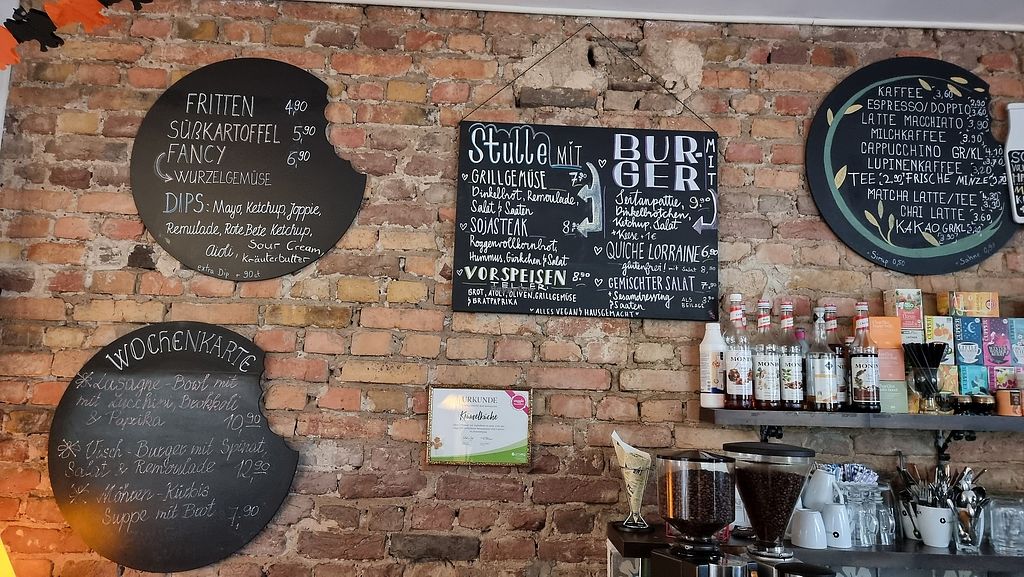 FRITTEN 4,90
SÜßKARTOFFEL 5,90
FANCY 6,90
WURZELGEMÜSE
DIPS: Mayo, Ketchup, Joppie,
Remulade, Rote Bete Ketchup,
Aioli, Sour Cream,
Kräuterbutter
extra Dip + 90ct
Stulle MIT
GRILLGEMÜSE 7,90
Dinkelbrot, Remoulade,
Salat & Saaten
SOJASTEAK
Roggenvollkornbrot,
Hummus, Gürkchen & Salat
VORSPEISEN 8,90
TELLER:
BROT, AIOLI, OLIVEN, GRILLGEMÜSE
& BRATPAPRIKA
BURGER MIT
Seitanpattie, 9,90
Dinkelbrötchen,
Ketchup, Salat
+ Käse + 1€
QUICHE LORRAINE 6,90
glutenfrei! mit Salat
GEMISCHTER SALAT 7,90
+ Sesamdressing
& Saaten
ALS BEILAGE
ALLES VEGAN & HAUSGEMACHT
KAFFEE 3,60
ESPRESSO/DOPPIO
LATTE MACCHIATO 3,90
MILCHKAFFEE 3,90
CAPPUCCINO GR/KL
LUPINENKAFFEE
TEE 2,90 FRISCHE MINZE
MATCHA LATTE/TEE
CHAI LATTE 3,60
KAKAO GR/KL
Sirup 0,50
Sahne
WOCHENKARTE
Lasagne-Bowl mit
mit Zucchini, Brokkoli
& Paprika 10,90
Visch-Burger mit Spinat,
Salat & Remoulade 12,90
Möhren-Kürbis
Suppe mit Brot 7,90
URKUNDE
Krümelküche
MONIN
MONIN
MONIN
MONIN